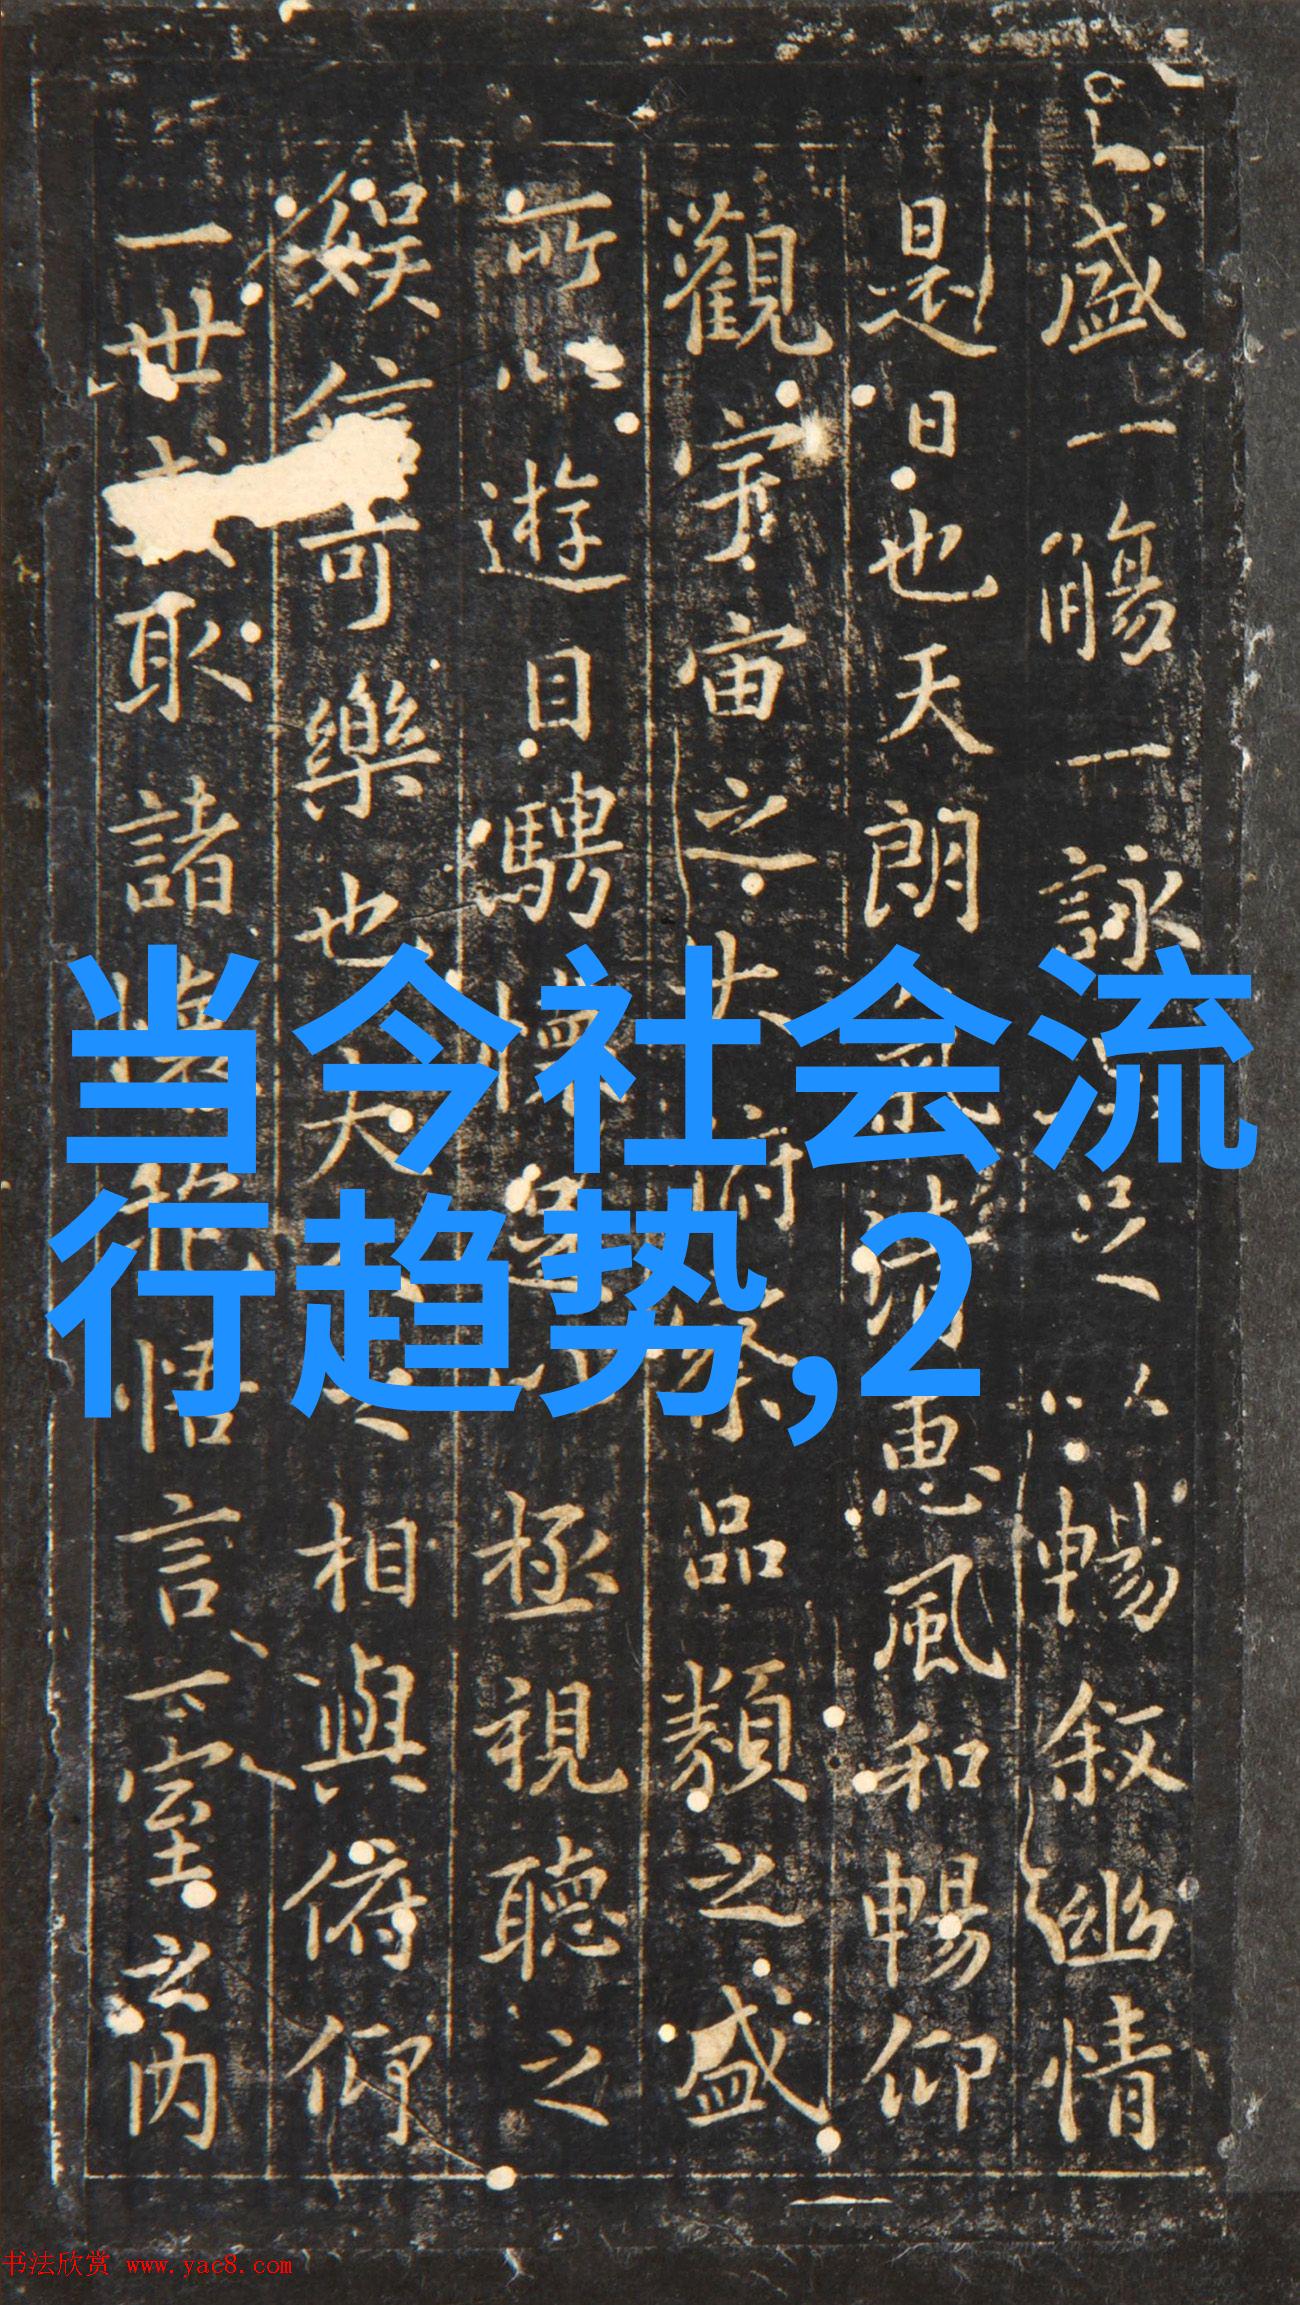 盛一觴一詠亦足以暢敘幽情
是日也天朗氣清惠風和暢仰
觀宇宙之大俯察品類之盛
所以遊目騁懷足以極視聽之
娛信可樂也夫人之相與俯仰
一世或取諸懷抱悟言一室之内
当今社会流
行趋势,2
书法欣赏 www.yac8.com